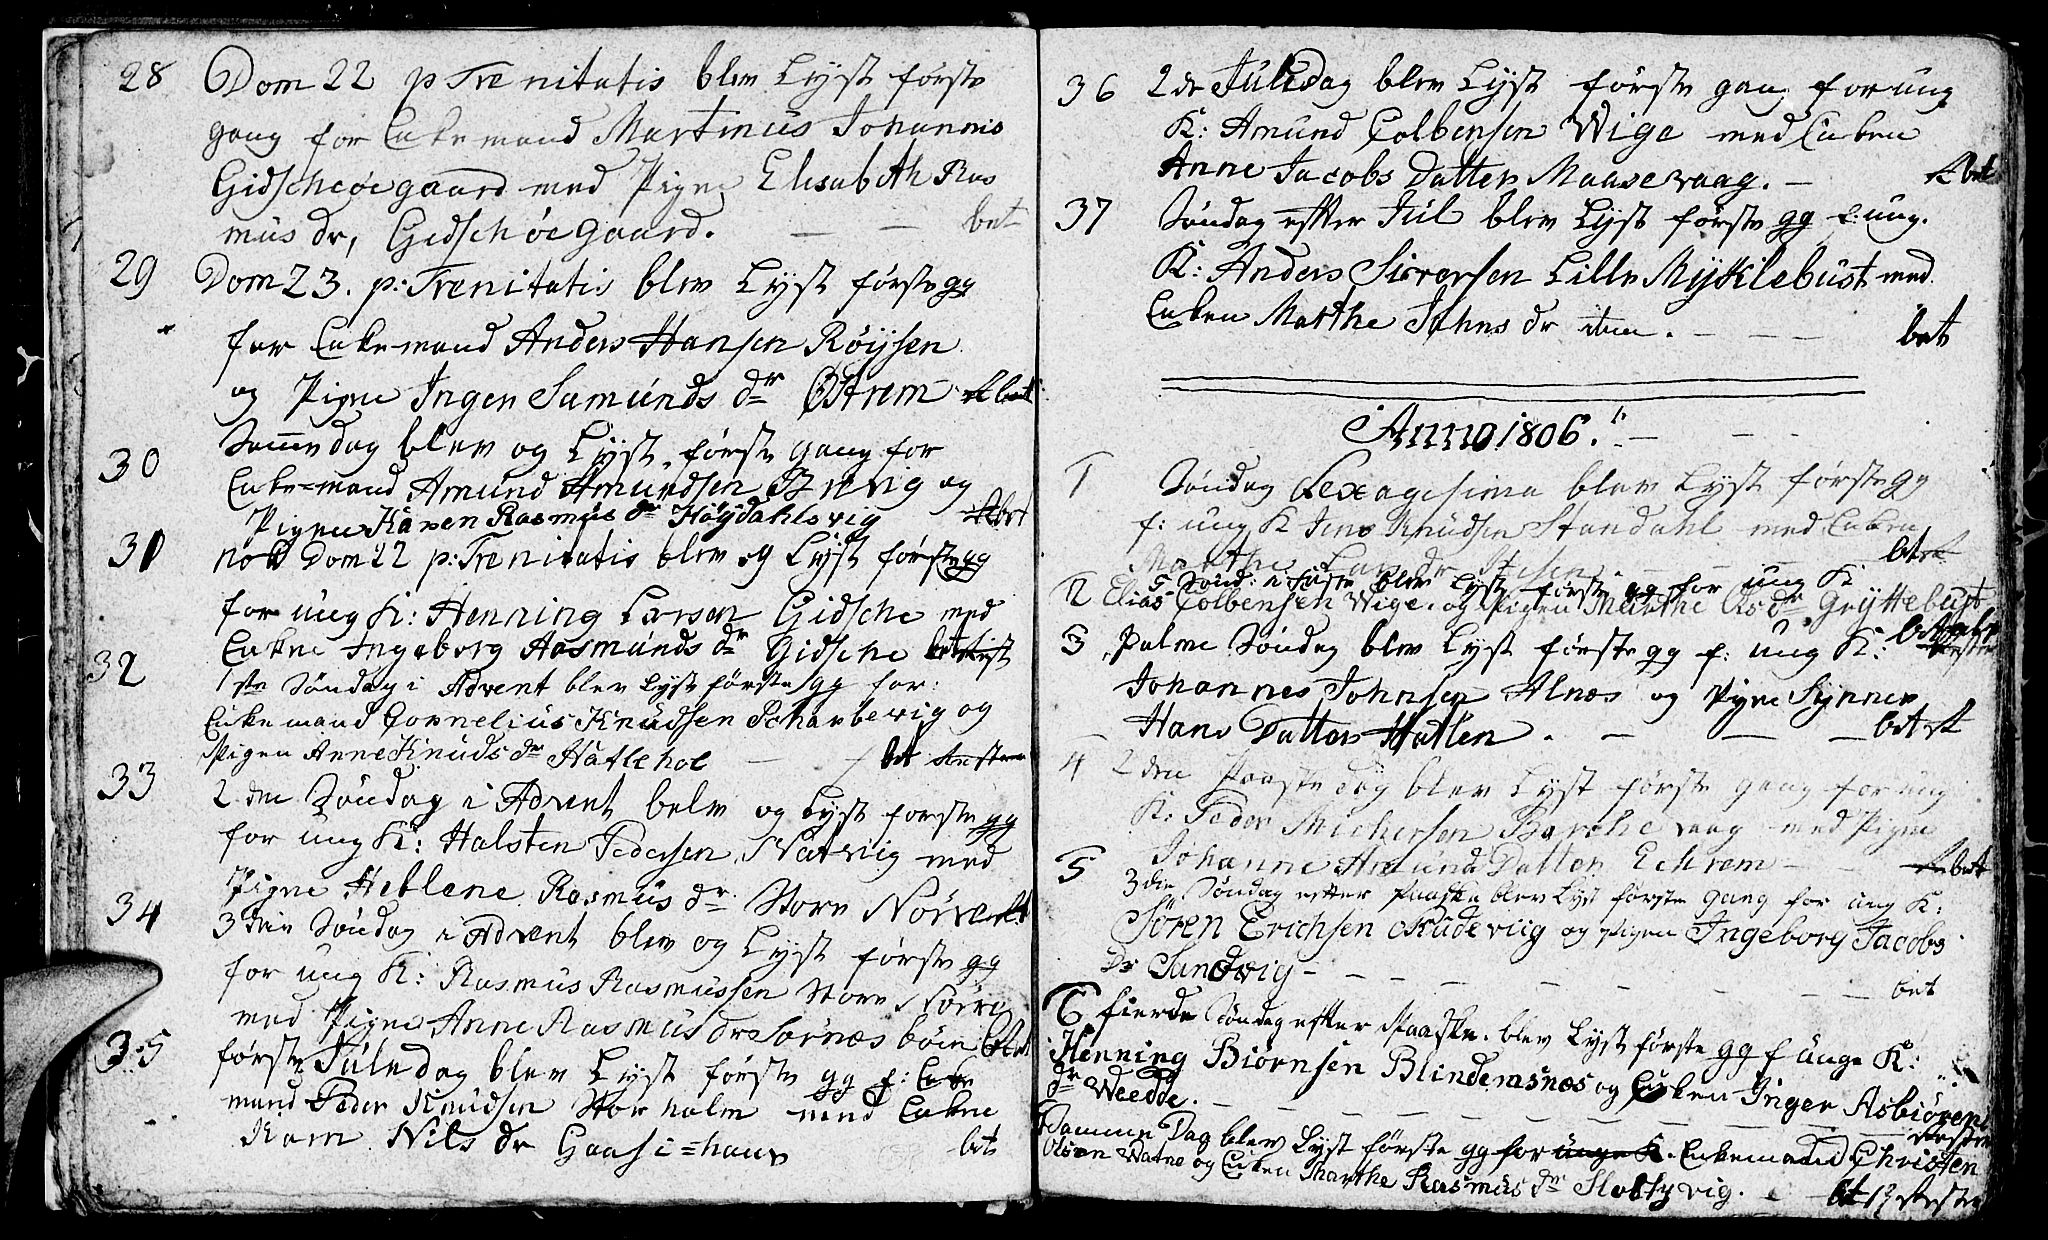 28 Dom 22 p Trenitatis blev Lyst første
gang for Enkemand Martinus Johannis
Gidschøegaard med Pigne Elisabeth Ras
mus dr, Gidschöegaard. — — bet
29 Dom 23. p: Trenitatis blev Lyst første gg
for Enkemand Anders Hansen Röysen
og Pigne Inger Samunds dr Østrem
30 Samme dag blev og Lyst første gang for
Enke=mand Amund Amundsen Brevig og
Pigen Karen Rasmus dr Høgdahlsvig
31 nok Dom 22 p: Trenitatis blev og Lyst første gg
for ung K: Henning Larsen Gidsche med
Enkne Ingeborg Aasmunds dr Gidsche
32 1ste Søndag i Advent blev Lyst første gg for:
Enkemand Cornelius Knudsen Scharbevig og
Pigen Anne Knuds dr Hatlehoe — bet
33 2den Søndag i Advent belv og Lyst første gg
for ung K: Halsten Pedersen Natvig med
Pigne Heblene Rasmus dr Store Nørve
34 3die Søndag i Advent blev og Lyst første gg
for ung K: Rasmus Rasmussen Store Nørve
med Pigne Anne Rasmus dr Sørnæs böin
35 første Juledag blev Lyst første gg f: Enke
mand Peder Knudsen Storholm med Enkne
Karn Nils dr Gaasi=haur bet
36 2de Juledag blev Lyst første gang for ung
K: Amund Colbensen Wige med Enken
Anne Jacobs Datter Maasevaag. — bet
37 Søndag efter Jul blev Lyst første gg f: ung.
K: Anders Siversen Lille Mykklebust med
Enken Marthe Johns dr item. — — — bet
Anno 1806.
1 Søndag Sexagesima blev Lyst første gg
f: ung K Jens Knudsen Standahl med Enken
Marthe
2 5 Sønd: i Faste blev Lyst første gg for ung K
Elias Colbensen Wige. og Pigen Marthe Ols dr Gryttebust
3 Palme Søndag blev Lyst første gg f: ung K:
Johannes Johnsen Alnæs og Pigne Synnev
Hans Datter Hatlen. — — — bet
4 2den Paaske dag blev Lyst første gang for ung
K: Peder Michelsen Barshevaag med Pigne
Johanne Amunds Datter Echrem — bet
5 3die Søndag efter Paaske blev Lyst første gang for ung K:
Søren Erichsen Skudeviig og Pigen Ingeborg Jacobs
Dr Sandvig — — — bet
6 fierde Søndag efter Paaske. blev Lyst første gg f unge K:
Henning Biørnsen Blindemsnæs og Enken Inger Asbiørens
dr Weedde. — — —
Samme Dag blev Lyst første gg for unge K. Enkemand Christen
Olsen Watne og Enken Marthe Rasmus dr Sloltzvig.